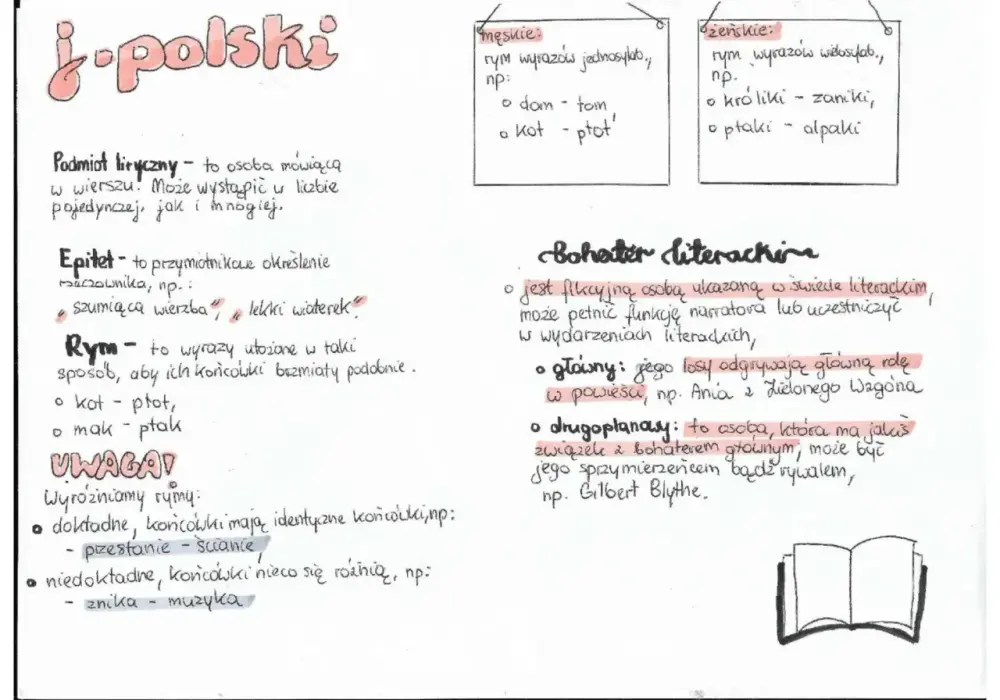 j. polski
Podmiot liryczny - to osoba mówiącą
w wierszu. Może wystąpić w liczbie
pojedynczej, jak i mnogiej.
Epitet - to przymiotnikowe określenie
rzeczownika, np.:
„szumiąca wierzba", „lekki wiaterek".
Rym - to wyrazy ułożone w taki
sposób, aby ich końcówki brzmiały podobnie.
kot - płot,
mak - ptak
UWAGA!
Wyróżniamy rymy:
dokładne, końcówki mają identyczne końcówki, np:
- przestanie - ścianie,
niedokładne, końcówki nieco się różnią, np:
- znika - muzyka
męskie:
rym wyrazów jednosylab.,
np:
dom - tom
kot - płot
żeńskie:
rym wyrazów wielosylab.,
np.
króliki - zaniki,
ptaki - alpaki
Bohater literacki
jest fikcyjną osobą ukazaną w świecie literackim,
może pełnić funkcję narratora lub uczestniczyć
w wydarzeniach literackich,
główny: jego losy odgrywają główną rolę
w powieści, np. Ania z Zielonego Wzgórza
drugoplanowy: to osoba, która ma jakiś
związek z bohaterem głównym, może być
jego sprzymierzeńcem bądź rywalem,
np. Gilbert Blythe.